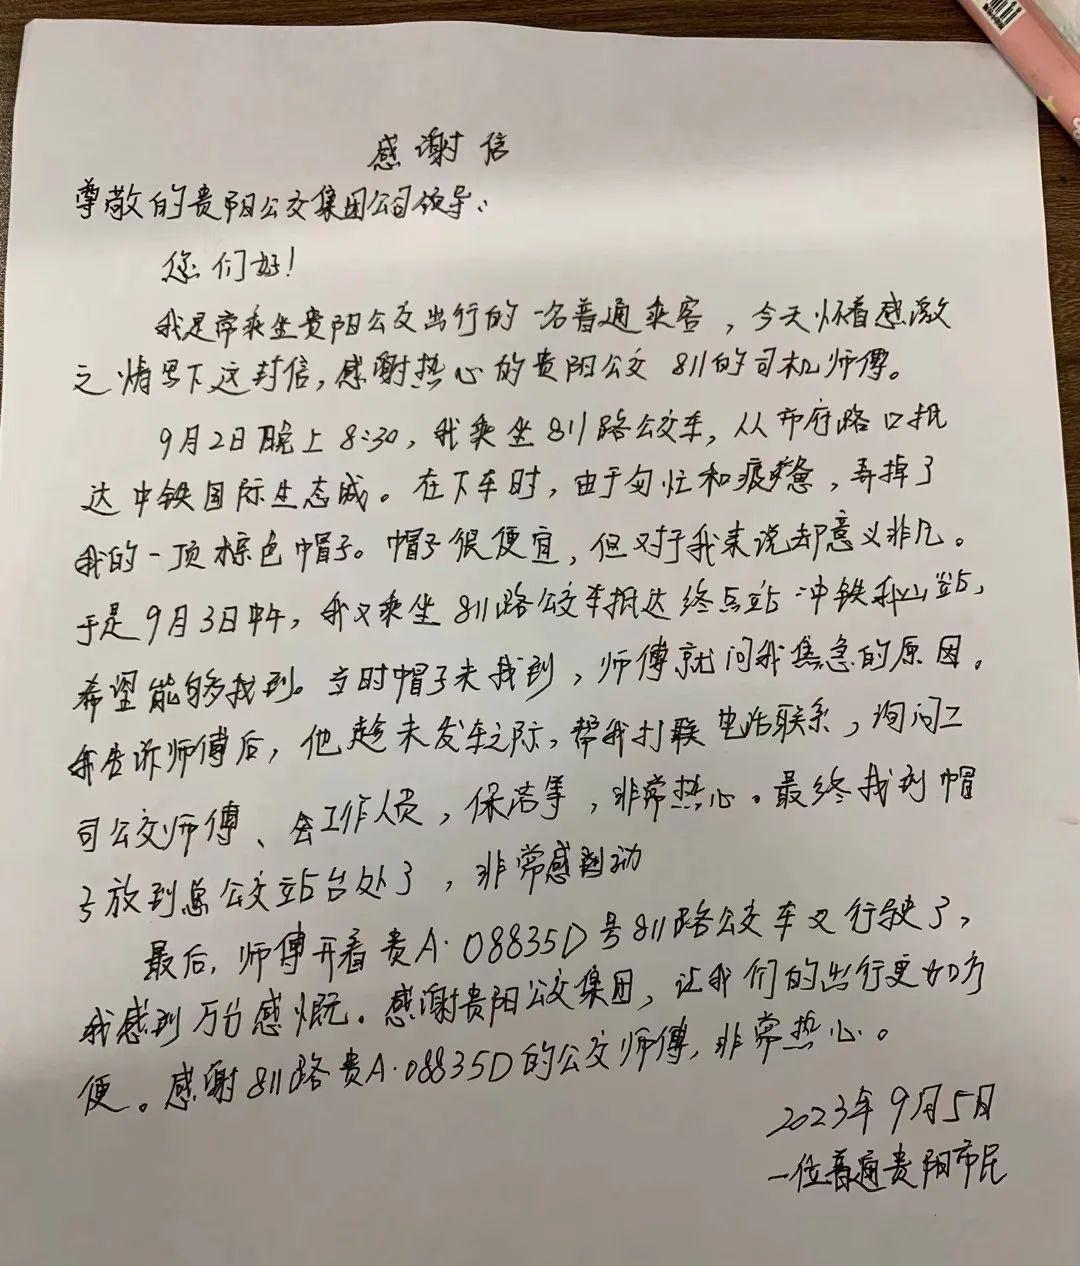 感谢信
尊敬的贵阳公交集团公司领导：
您们好！
我是常乘坐贵阳公交出行的一名普通乘客，今天怀着感激
之情写下这封信，感谢热心的贵阳公交 811的司机师傅。
9月2日晚上8:30，我乘坐811路公交车，从市府路口抵
达中铁国际生态城。在下车时，由于匆忙和疲惫，弄掉了
我的一顶棕色帽子。帽子很便宜，但对于我来说却意义非凡。
于是9月3日中午，我又乘坐811路公交车抵达终点站中铁 站，
希望能够找到。当时帽子未找到，师傅就问我焦急的原因。
我告诉师傅后，他趁未发车之际，帮我打联电话联系，询问工
司公交师傅、会工作人员，保洁等，非常热心。最终找到帽
子放到总公交站台处了，非常感动
最后，师傅开着贵A·08835D号811路公交车又行驶了，
我感到万分感慨。感谢贵阳公交集团，让我们的出行更加方
便。感谢811路贵A·08835D的公交师傅，非常热心。
2023年9月5日
一位普通贵阳市民